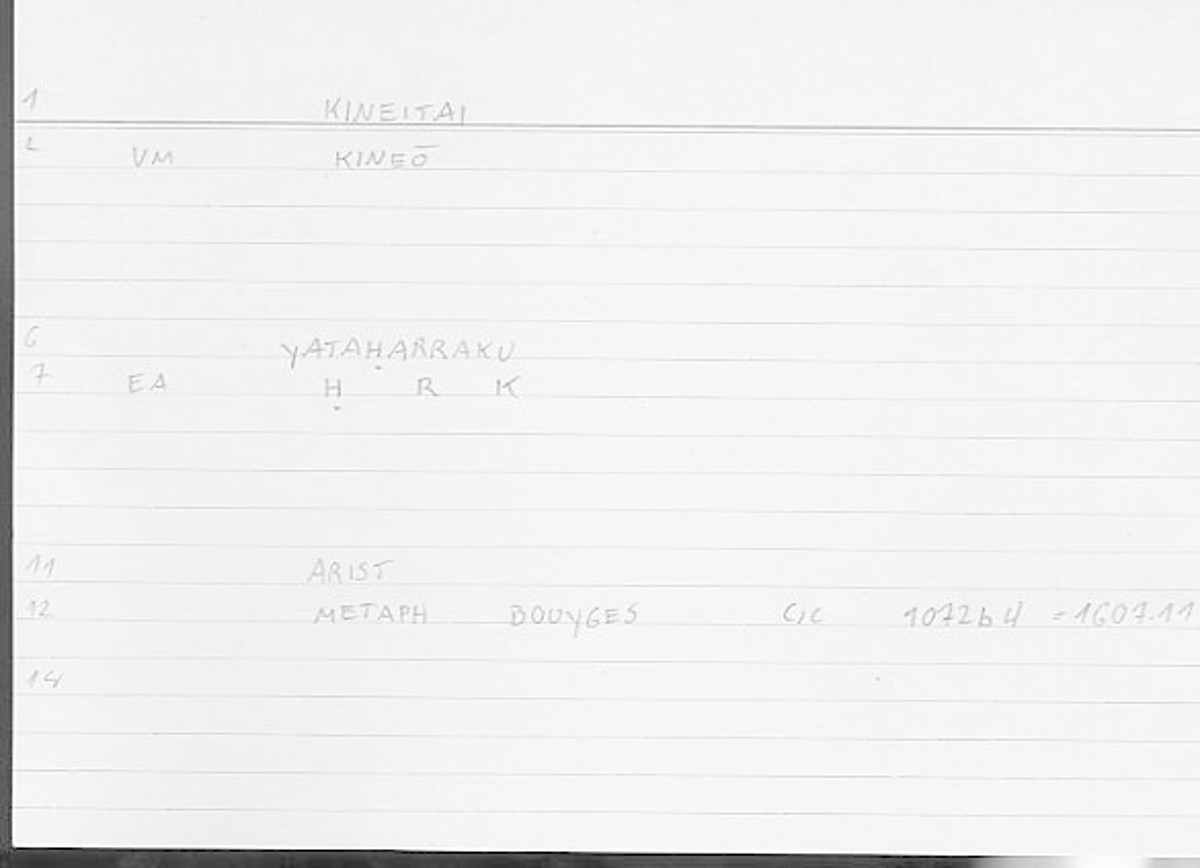 1 KINEITAI
2 VM KINEŌ
6 YATAḤARRAKU
7 EA Ḥ R K
11 ARIST
12 METAPH BOUYGES 1072b4 =1607.11
14